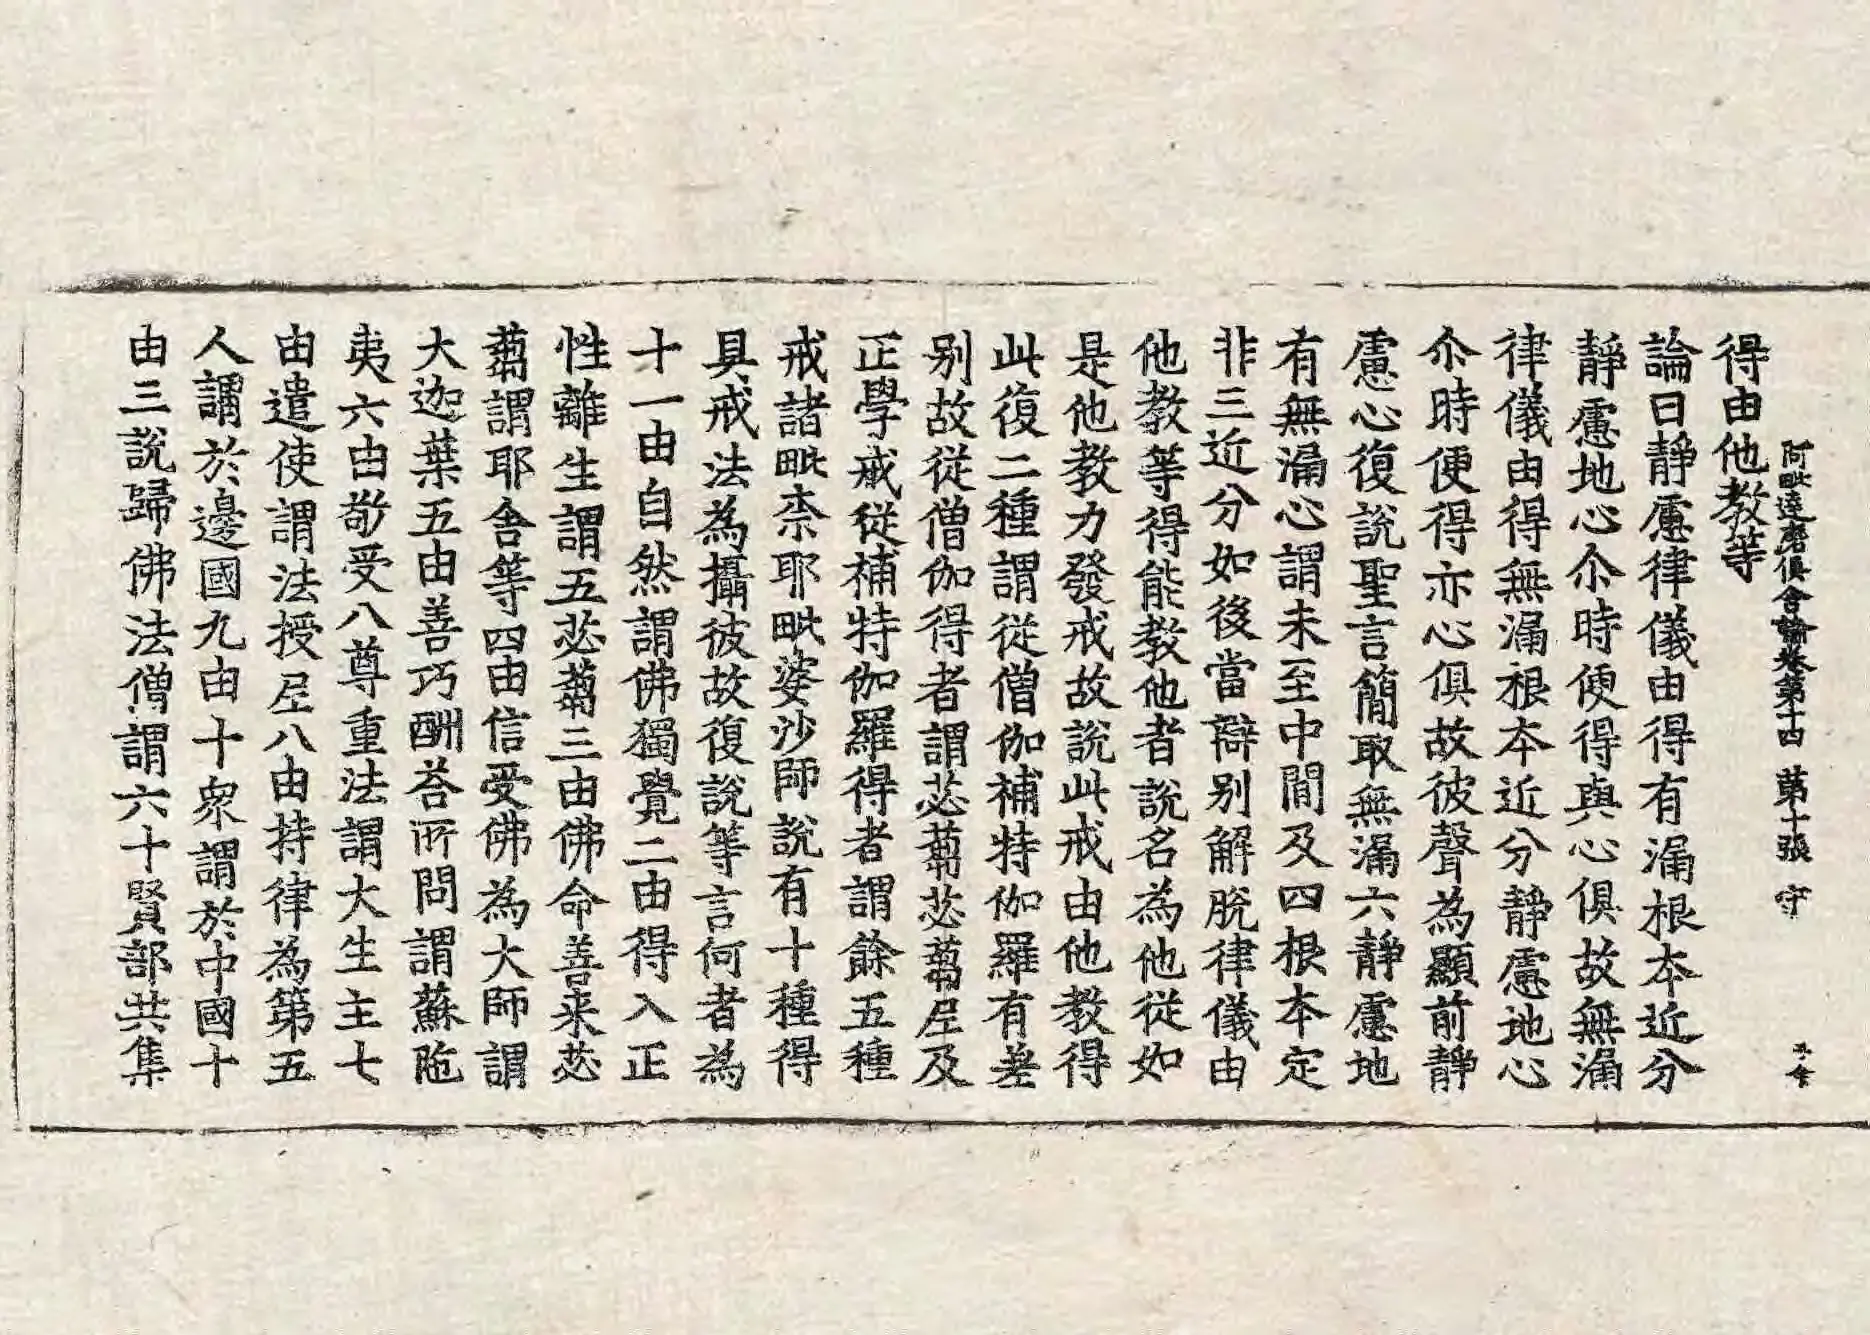 阿毗達磨俱舍論卷第十四 第十張 守
得由他教等
論曰靜慮律儀由得有漏根本近分
靜慮地心尒時便得與心俱故無漏
律儀由得無漏根本近分靜慮地心
尒時便得亦心俱故彼聲為顯前靜
慮心復說聖言簡取無漏六靜慮地
有無漏心謂未至中間及四根本定
非三近分如後當辯別解脫律儀由
他教等得能教他者說名為他從如
是他教力發戒故說此戒由他教得
此復二種謂從僧伽補特伽羅有差
別故從僧伽得者謂苾蒭苾蒭尼及
正學戒從補特伽羅得者謂餘五種
戒諸毗柰耶毗婆沙師說有十種得
具戒法為攝彼故復說等言何者為
十一由自然謂佛獨覺二由得入正
性離生謂五苾蒭三由佛命善来苾
蒭謂耶舍等四由信受佛為大師謂
大迦葉五由善巧酬荅所問謂蘇陁
夷六由敬受八尊重法謂大生主七
由遣使謂法授尼八由持律為第五
人謂於邊國九由十衆謂於中國十
由三說歸佛法僧謂六十賢部共集